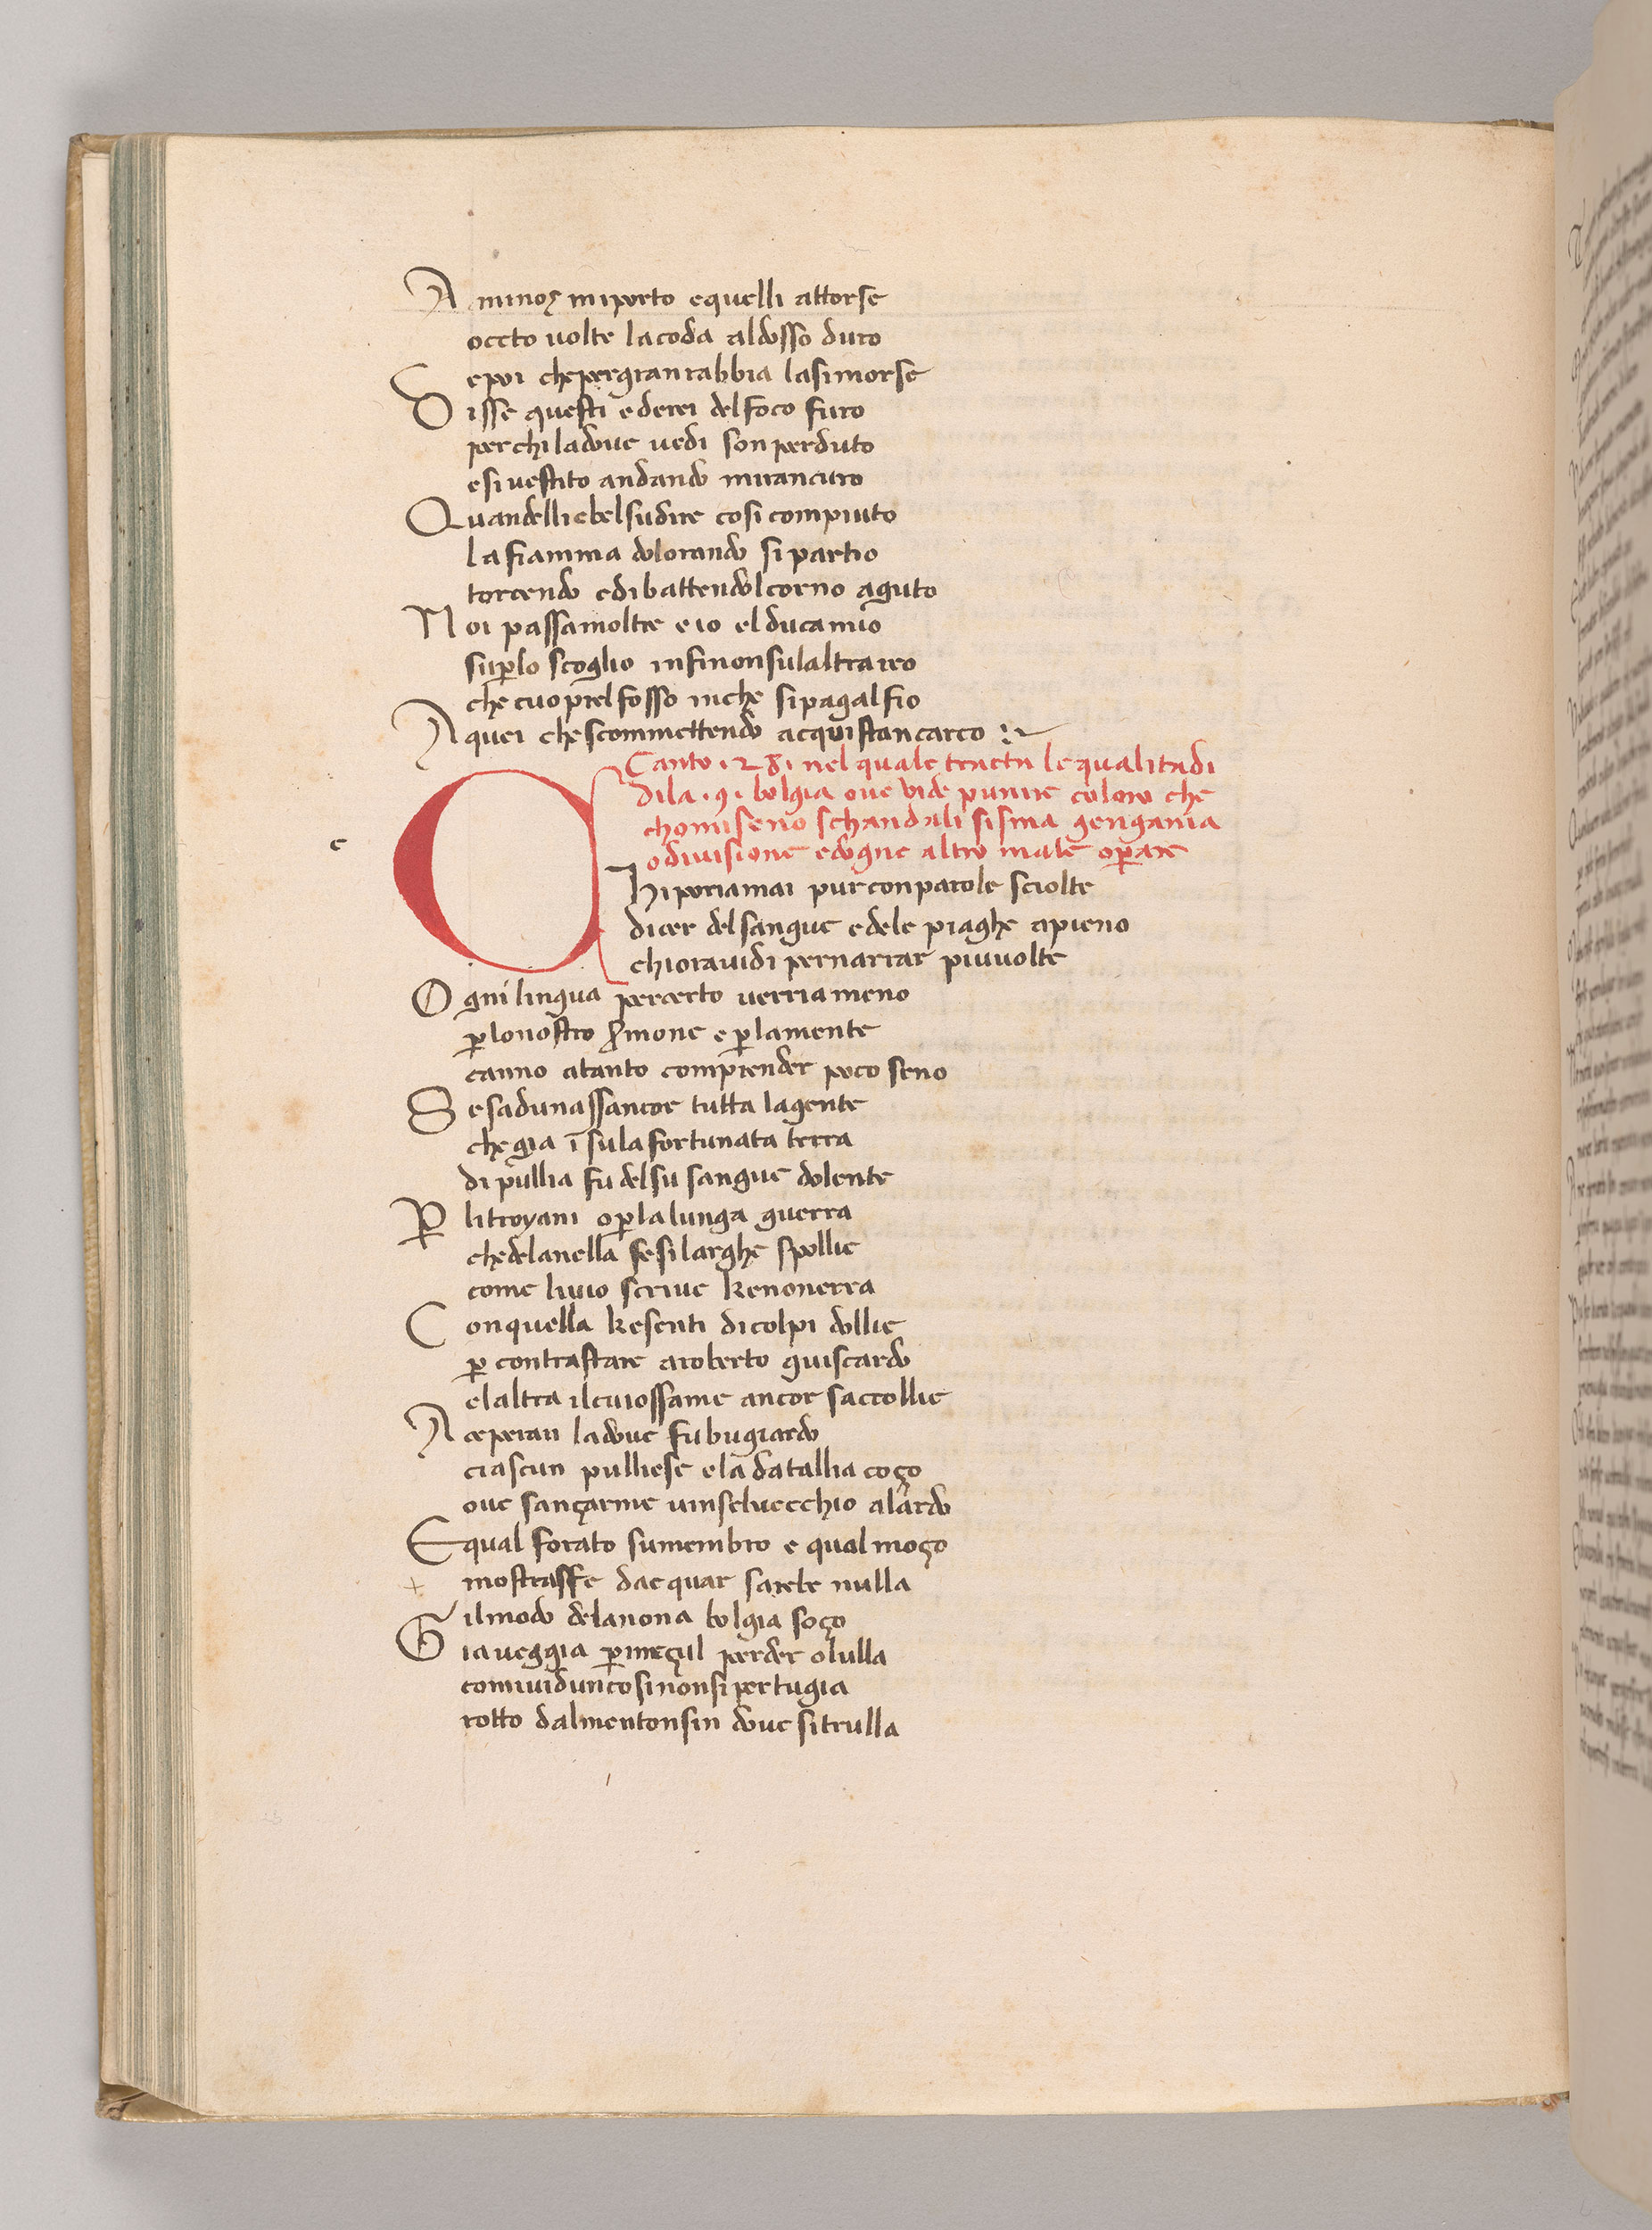 A minos mi porto e quelli attorse
occto uolte la coda al dosso duro
e poi che per gran rabbia la si morse
D isse questi e de rei del foco furo
per chi la doue uedi son perduto
e si uestito andando mi rancuro
Q uandelli ebel su dire cosi compiuto
la fiamma dolorando si partio
torcendo e dibattendol corno aguto
N oi passamoltre e io el duca mio
su p lo scoglio infinon sulaltra rco
che cuoprel fosso in che si pagal fio
A quei che scommettendo acquistan carco
Canto .28. nel quale tracta le qualita di
di la .9. bolgia oue vide punire coloro che
chomiseno schandali sisma
o diuisione e dogne altro male opare
C Hi poria mai pur con parole sciolte
dicer del sangue e dele piaghe apieno
chi ora uidi per narrar piu uolte
O gni lingua per certo uerria meno
p lo nostro smone e p la mente
canno a tanto comprender poco seno
S e sadunassancor tutta la gente
che gia ī su la fortunata terra
di pullia fu del su sangue dolente
P li troyani o p la lunga guerra
che de lanella fe si larghe spollie
come liuio scriue ke non erra
C on quella ke senti di colpi dollie
p contrastare a roberto guiscardo
e laltra il cui ossame ancor saccollie
A ceperan la doue fu bugiardo
ciascun pulliese e la da tallia coço
oue sançarme uinsel uecchio alardo
E qual forato su membro e qual moço
mostrasse dae quar sarebe nulla
il modo de la nona bolgia soço
G ia ueggia p meçul perder o lulla
comi uidun cosi non si pertugia
rotto dal mento nsin doue si trulla
e